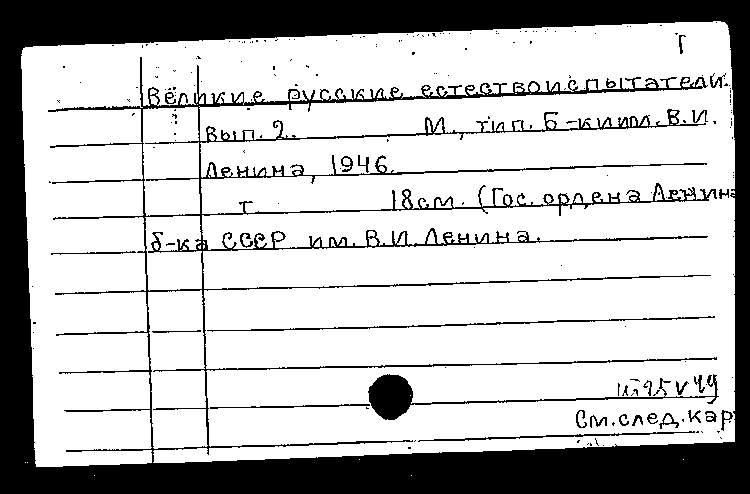 I
Великие русские естествоиспытатели.
Вып. 2. М., тип. Б-ки им. В.И.
Ленина, 1946.
т 18 см. (Гос. ордена Ленина
б-ка СССР им. В.И. Ленина.
См. след. кар